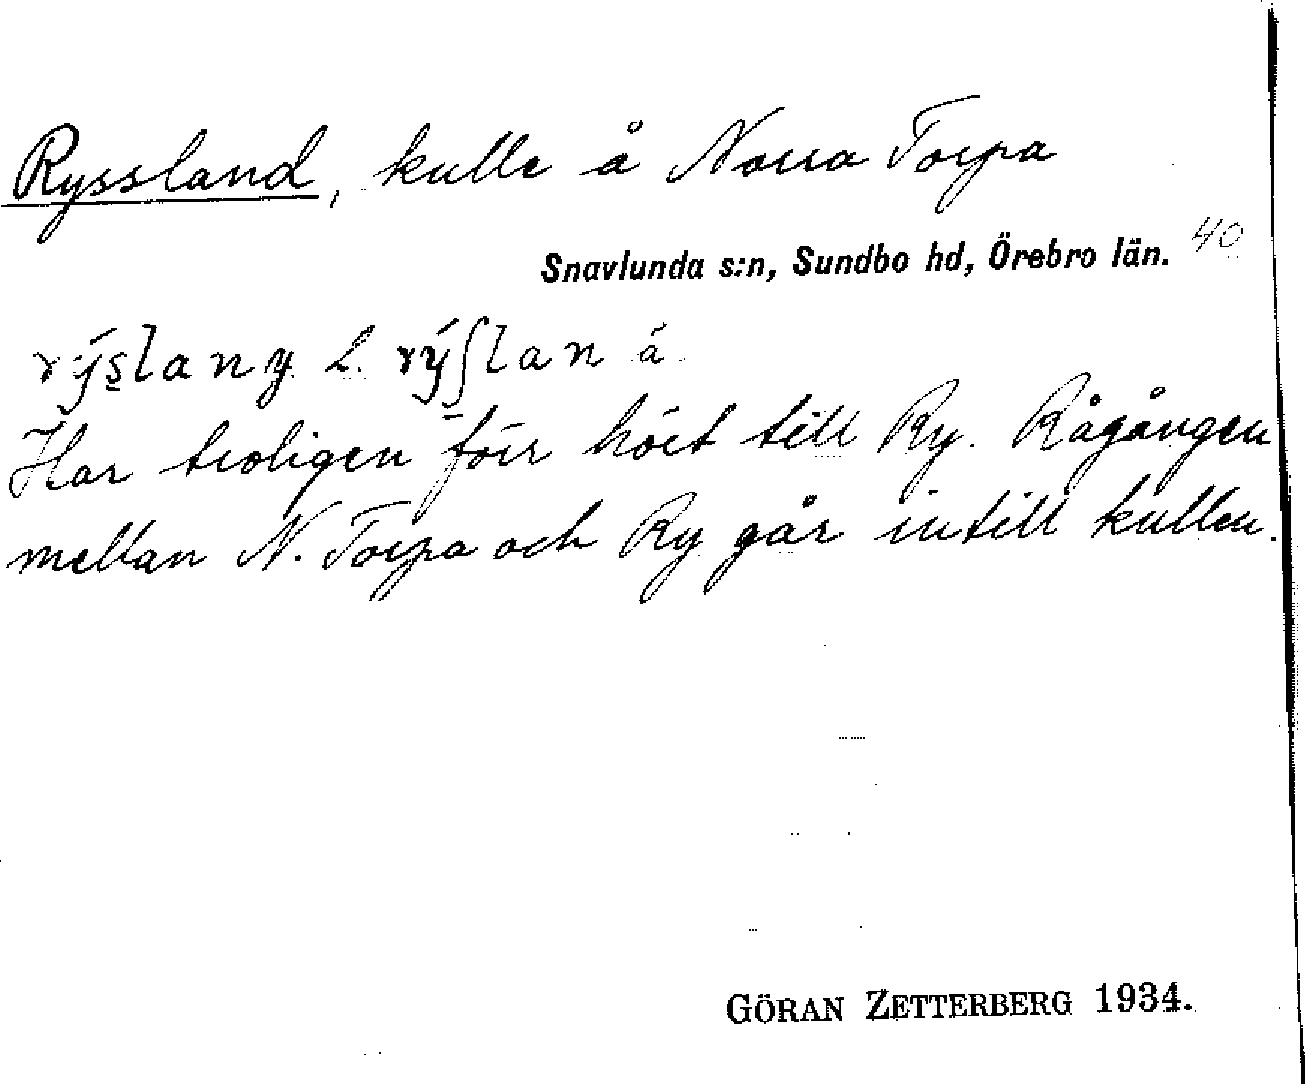 Ryssland, kulle å Norra Torpa
Snavlunda s:n, Sundbo hd, Örebro län. 40
rýs̱lan l. rýʃlan á.
Har troligen förr hört till Ry. Rågången
mellan N. Torpa och Ry går intill kullen.
GÖRAN ZETTERBERG 1934.